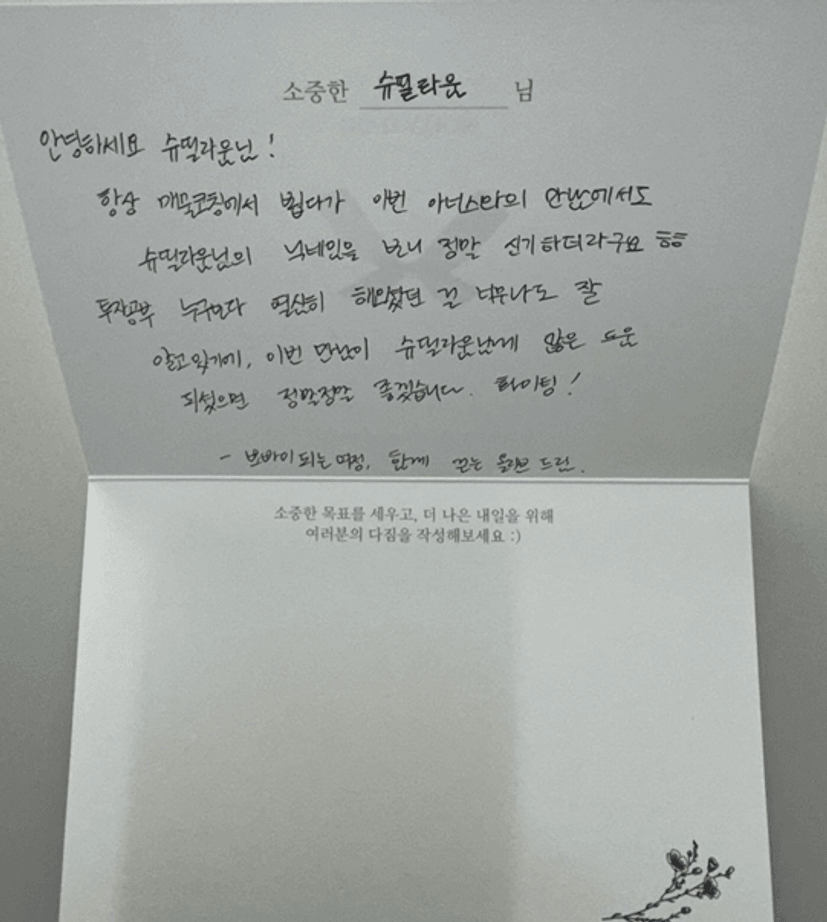 소중한 슈띨라운 님
안녕하세요 슈띨라운님!
항상 매물코칭에서 뵙다가 이번 와의 만남에서도
슈띨라운님의 닉네임을 보니 정말 신기하더라구요 ㅎㅎ
투자공부 누구보다 열심히 해오셨던 걸 너무나도 잘
알고있기에, 이번 만남이 슈띨라운님께 많은 도움
되셨으면 정말정말 좋겠습니다. 화이팅!
- 되는 여정, 함께 드림.
소중한 목표를 세우고, 더 나은 내일을 위해
여러분의 다짐을 작성해보세요 :)